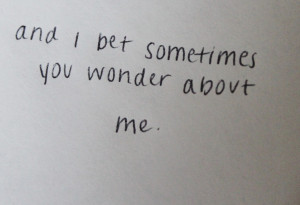 and I bet sometimes
you wonder about
me.